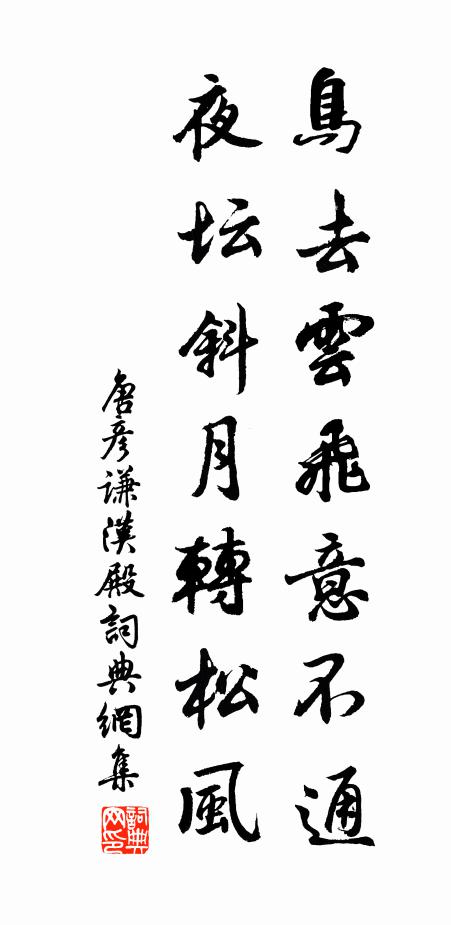 鳥去雲飛意不通
夜坛斜月轉松風
唐彦谦漢殿詞典網集
詞典网印